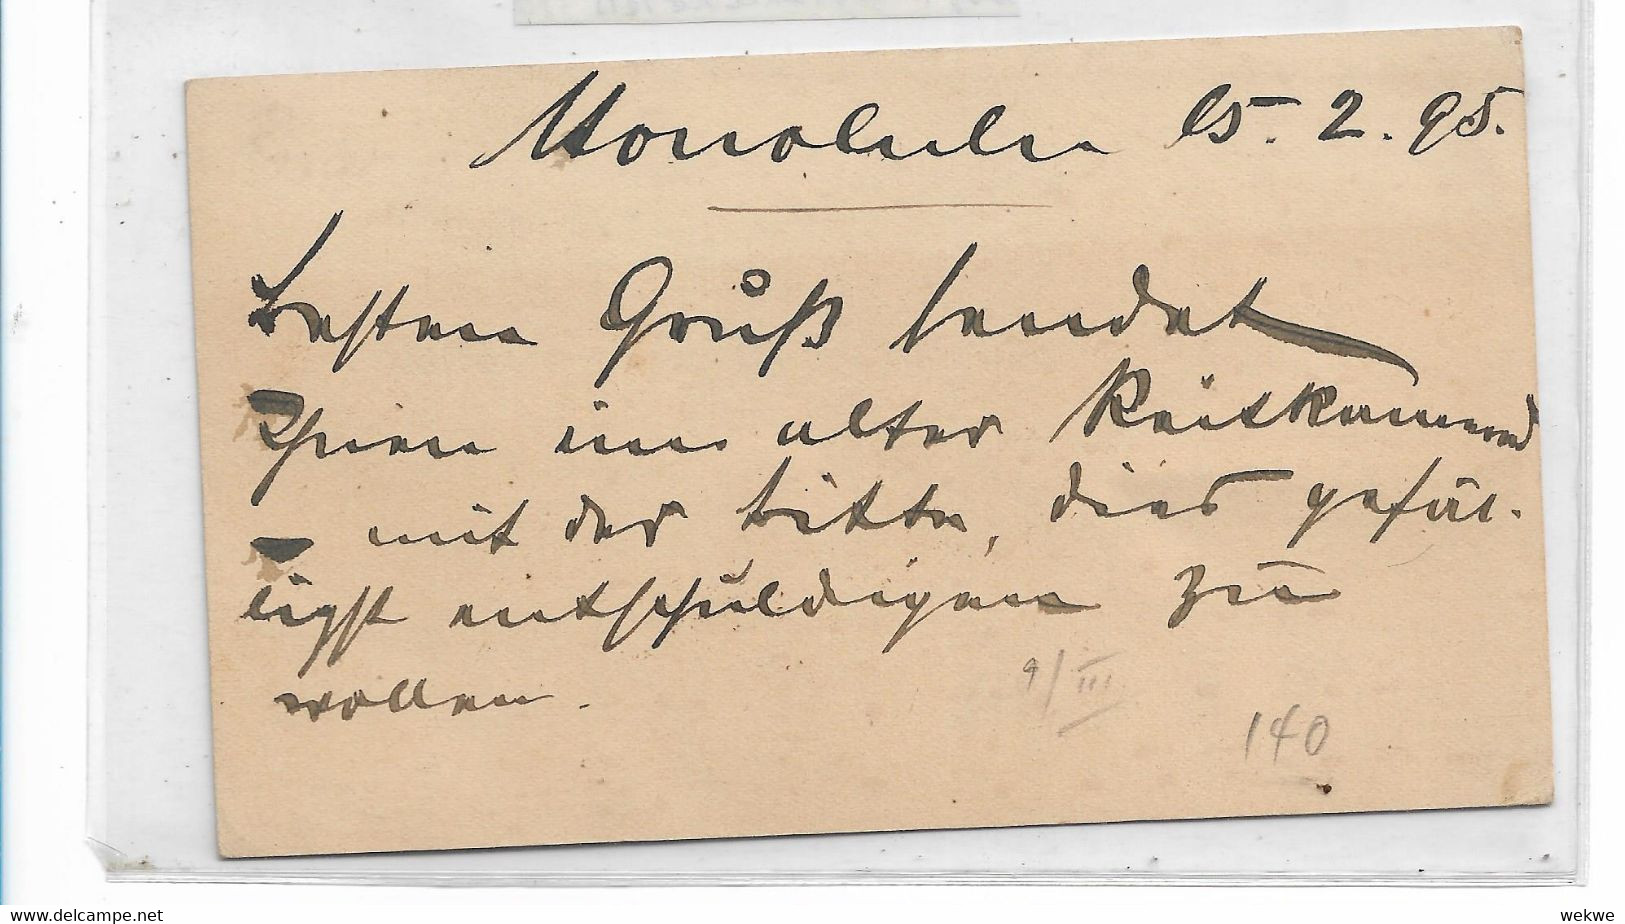 Honolulu 15. 2. 95.
besten Gruß sendet
Ihnen im alter Reiskamerad
– mit der bitte, dies gefäl-
ligst entschuldigen zu
wollen.
9/III
140
www.delcampe.net
wekwe